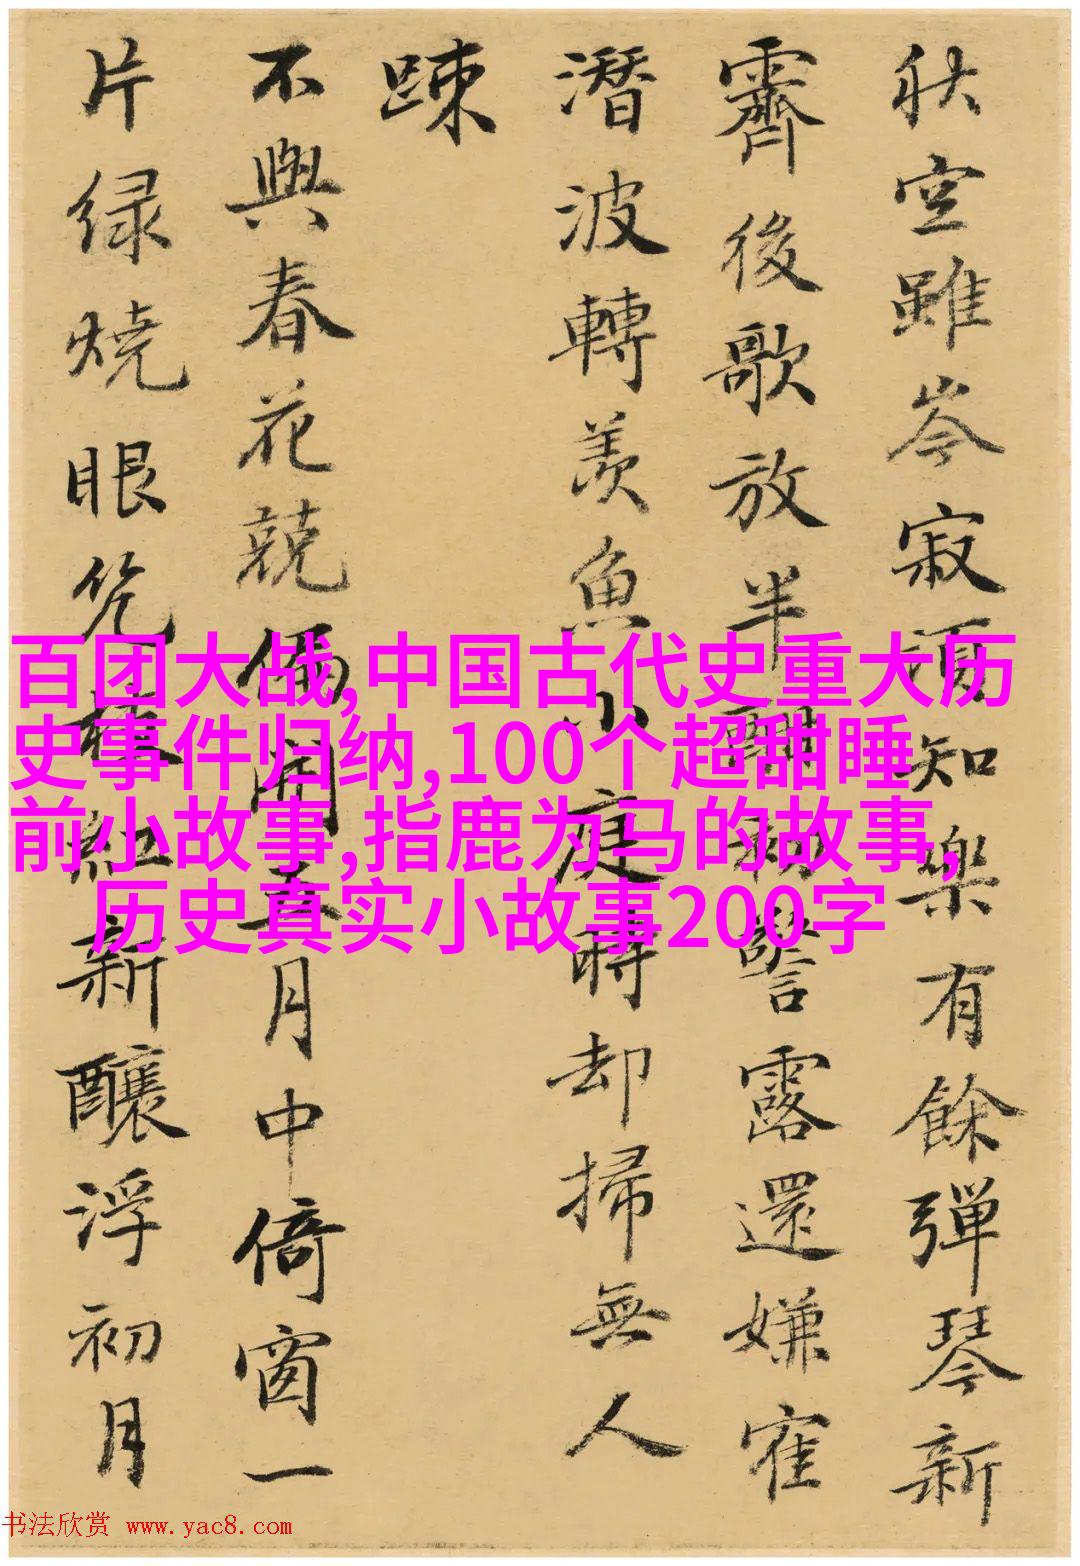 秋空雖岑寂知樂有餘彈琴新
霽後歌放半酣初警露還嫌寉
潛波轉羨魚小庭時却掃無人
踈
不與春花競偏開五月中倚窗一
片緑燒眼紅新釀浮初月
百团大战,中国古代史重大历
史事件归纳,100个超甜睡
前小故事,指鹿为马的故事,
历史真实小故事200字
书法欣赏 www.yac8.com